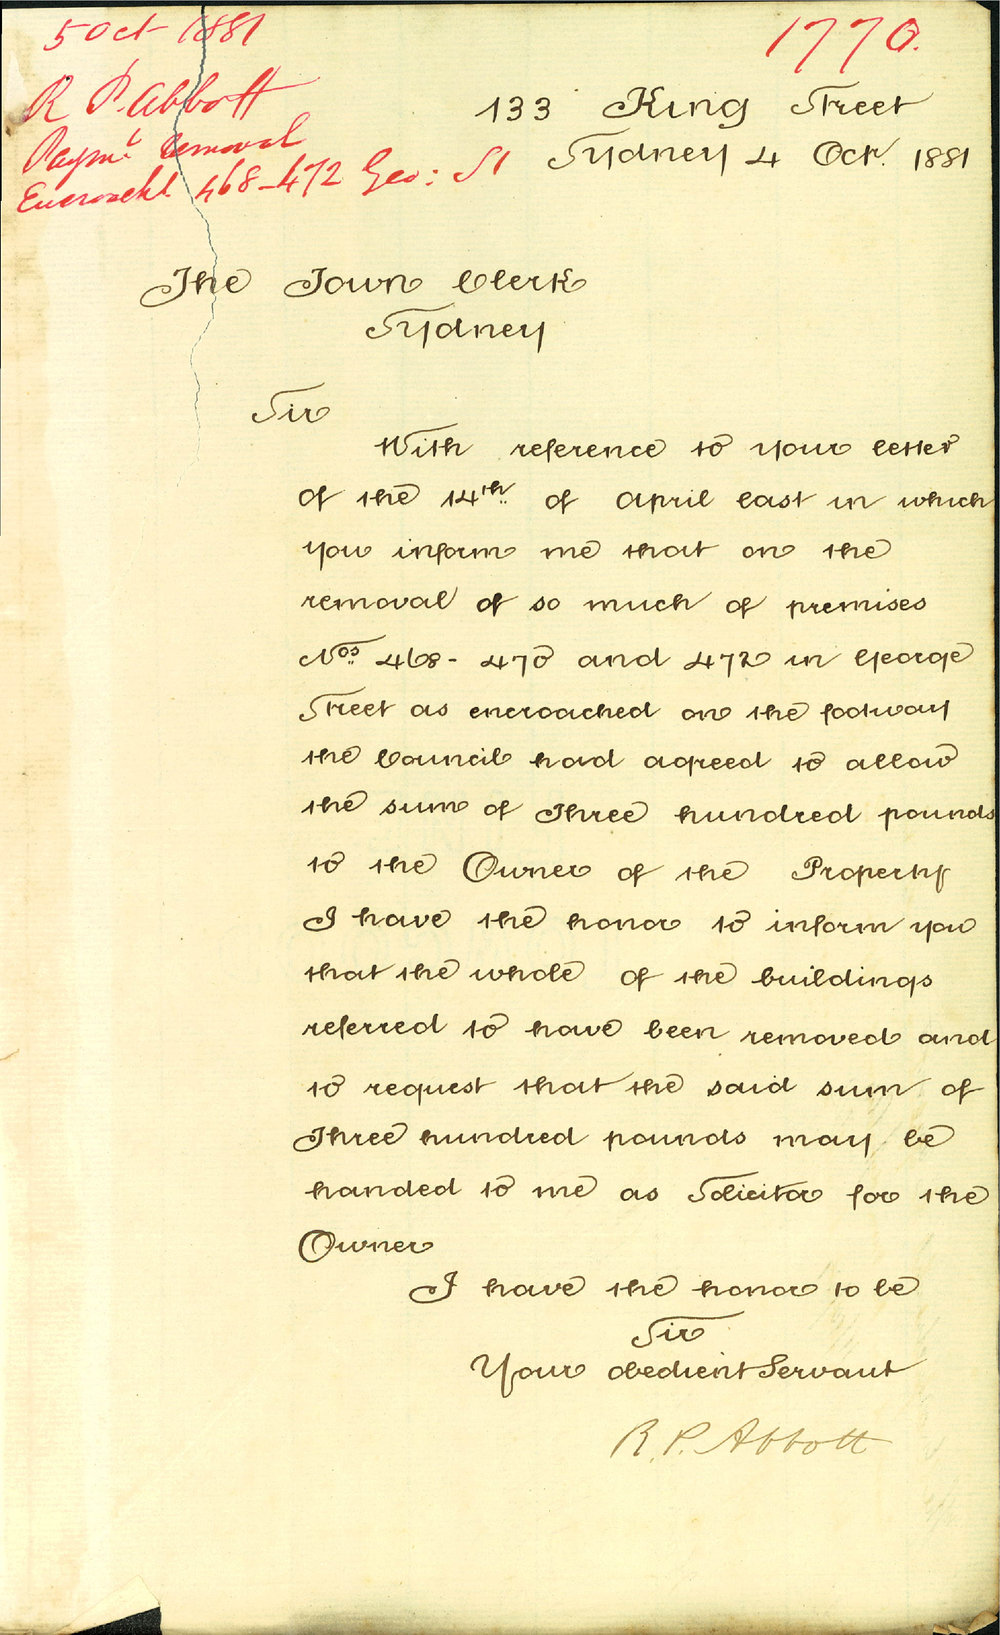 5 Oct 1881
1770.
R P. Abbott
Paymt. removal
Encroacht. 468-472 Geo: St
133 King Street
Sydney 4 Oct. 1881
The Town Clerk
Sydney
Sir
With reference to your letter
of the 14th. of April last in which
you inform me that on the
removal of so much of premises
Nos. 468- 470 and 472 in George
Street as encroached on the footway
the Council had agreed to allow
the sum of Three hundred pounds
to the Owner of the Property
I have the honor to inform you
that the whole of the buildings
referred to have been removed and
to request that the said sum of
Three hundred pounds may be
handed to me as Solicitor for the
Owner
I have the honor to be
Sir
Your obedient Servant
R. P. Abbott